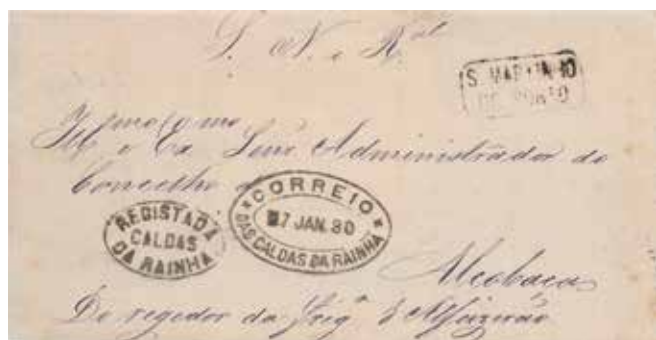 S. N. e R.al
S. MARTINHO
DO PORTO
Illmo e Exmo Senr Administrador do
Concelho d
CORREIO
27 JAN. 80
DAS CALDAS DA RAINHA
REGISTADA
CALDAS
DA RAINHA
Alcobaça
Do regedor da Freg.a d'Alfeizerão